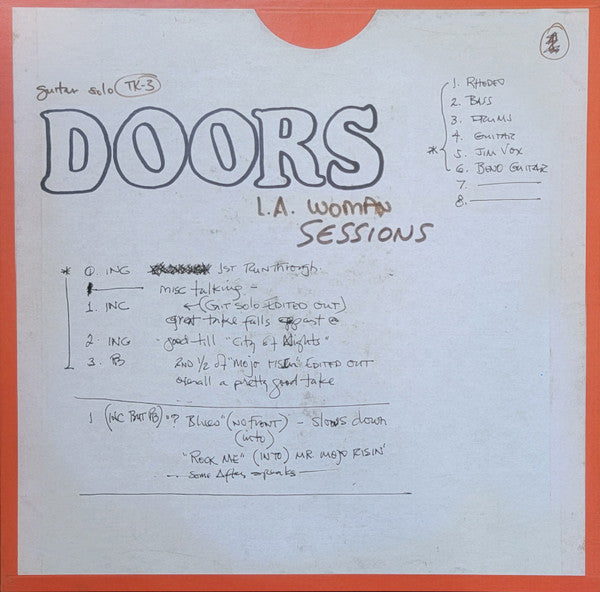 guitar solo TK-3
DOORS
L.A. WOMAN
SESSIONS
1. RHODES
2. BASS
3. DRUMS
4. GUITAR
* 5. JIM VOX
6. BEND GUITAR
7.
8.
* 0. INC 1ST RUNTHROUGH
misc talking -
1. INC ←(GIT SOLO EDITED OUT)
great take falls apart @
2. INC good till "City of Nights"
3. PB 2ND 1/2 of "MOJO RISIN" EDITED OUT
overall a pretty good take
1 (INC BUT PB) "? Blues" (NO FRONT) - slows down
(into)
"ROCK ME" (INTO) MR. MOJO RISIN'
- some After